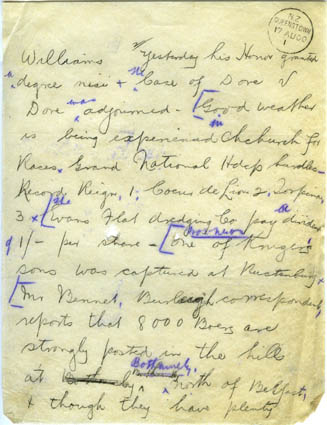 NZ
QUEENSTOWN
17 AU 00
1
Williams Yesterday his Honor granted
a degree nisi + the Case of Dore V
Dore was adjourned - [Good weather
is being experienced in Chchurch for
Races, Grand National Hdcp hurdles -
Record Reign, 1; Coeur de Lion 2, Torpina,
3 x [The Evans Flat dredging Co pay a divided
of 1/- per share - [One of Krugers
sons was captured at Rustenburg x
[Mr Bennet, Burleigh correspondent,
reports that 8000 Boers are
strongly posted in the hills
at Bothwell,
x North of Belfast,
+ though they have plenty